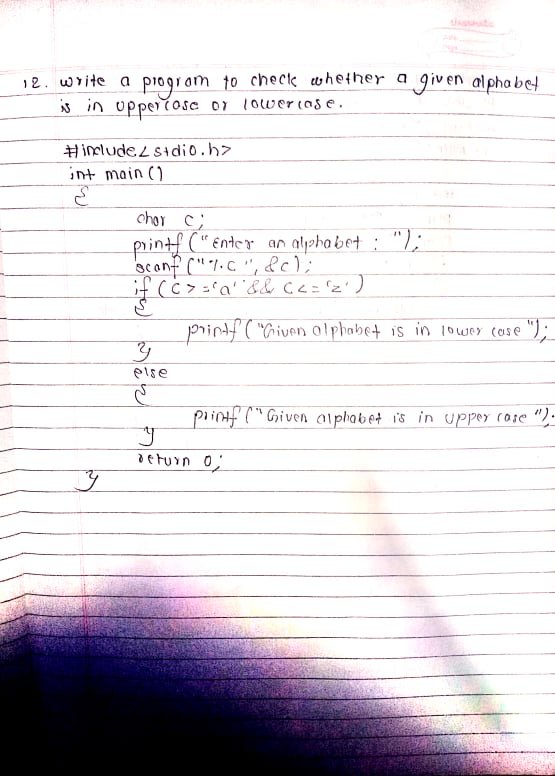 classmate
12. write a program to check whether a given alphabet
is in uppercase or lowercase.
#include<stdio.h>
int main()
{
char c;
printf("Enter an alphabet : ");
scanf("%c", &c);
if (c>='a' && c<='z')
{
printf("Given alphabet is in lower case");
}
else
{
printf("Given alphabet is in upper case");
}
return 0;
}